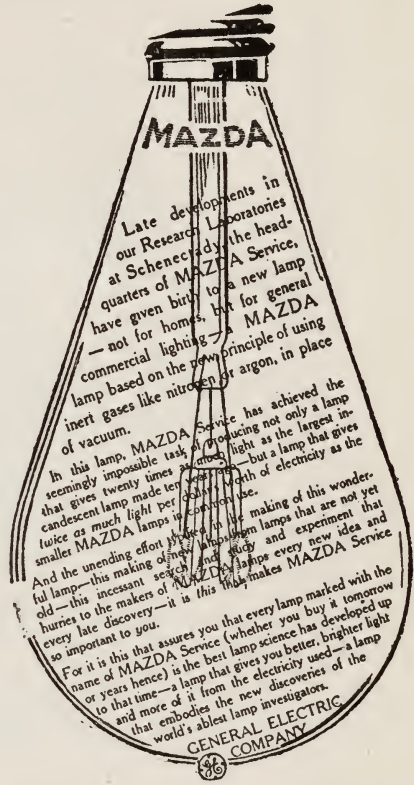 MAZDA
Late developments in
our Research Laboratories
at Schenectady, the head-
quarters of MAZDA Service,
have given birth to a new lamp
— not for homes, but for general
commercial lighting — a MAZDA
lamp based on the new principle of using
inert gases like nitrogen or argon, in place
of vacuum.
In this lamp, MAZDA Service has achieved the
seemingly impossible task of producing not only a lamp
that gives twenty times as much light as the largest in-
candescent lamp made ten years ago—but a lamp that gives
twice as much light per dollar's worth of electricity as the
smaller MAZDA lamps in common use.
And the unending effort in the making of this wonder-
ful lamp—this making of lamps from lamps that are not yet
old—this incessant search, and study and experiment that
hurries to the makers of MAZDA lamps every new idea and
every late discovery—it is this that makes MAZDA Service
so important to you.
For it is this that assures you that every lamp marked with the
name of MAZDA Service (whether you buy it tomorrow
or years hence) is the best lamp science has developed up
to that time—a lamp that gives you better, brighter light
and more of it from the electricity used—a lamp
that embodies the new discoveries of the
world's ablest lamp investigators.
GENERAL ELECTRIC
COMPANY
GE